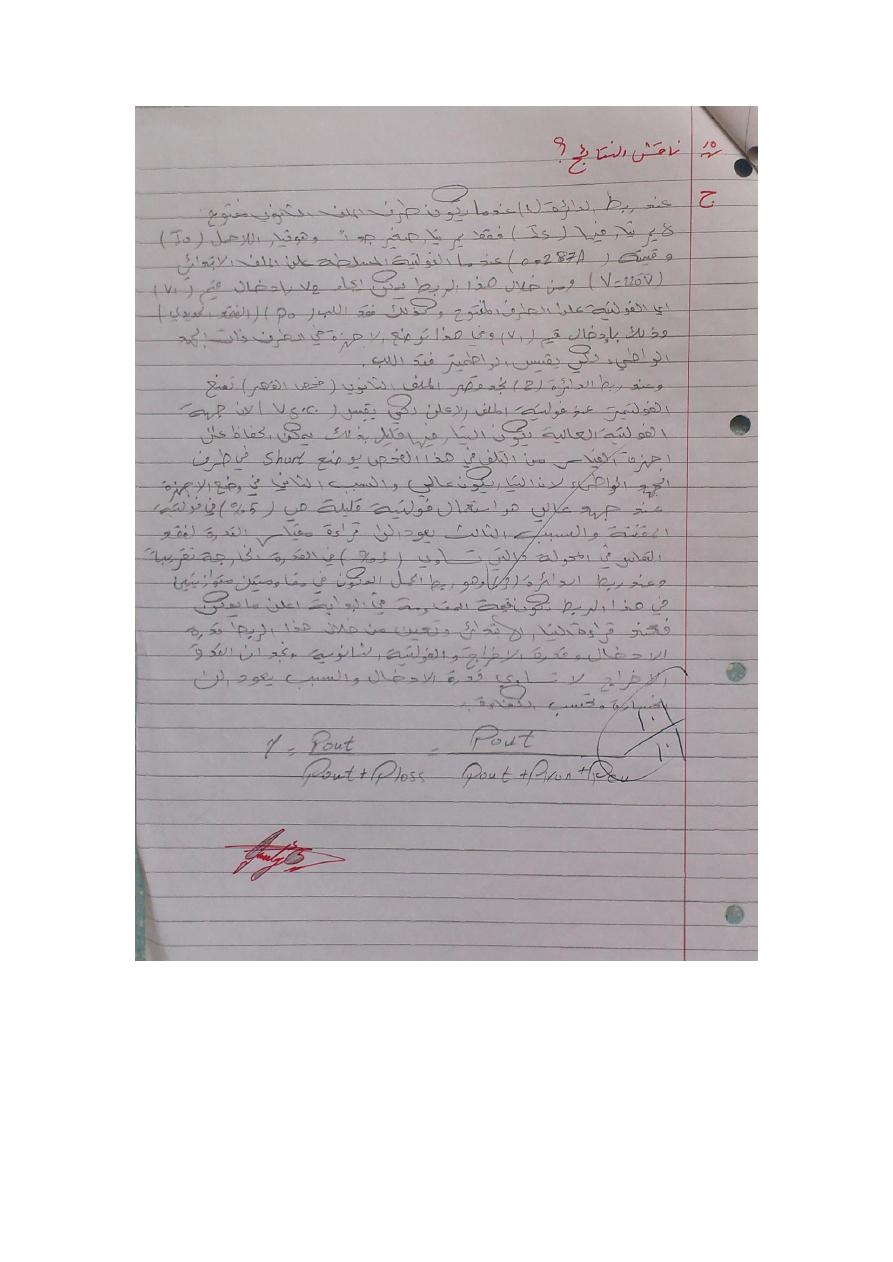 س٥ ناقش النتائج ؟
ج عند ربط الدائرة (1) عندما يكون طرف الملف الثانوي مفتوح
لا يمر تيار فيها (Is) فقط يمر تيار صغير جداً وهو تيار اللاحمل (Io)
و قيمته (0.0287A) عندما الفولتية المسلطة على الملف الابتدائي
(V=220V) ومن خلال هذا الربط يمكن ايجاد V2 بإدخال قيم (V1)
اي الفولتية على الطرف المفتوح وكذلك فقد اللب (Po) (الفقد الحديدي)
وذلك بإدخال قيم (V1) وفي هذا توضع الاجهزة في الطرف ذات الجهد
الواطيء لكي يقيس الواطميتر فقد اللب.
وعند ربط الدائرة (2) نجد قصر الملف الثانوي (فحص القصر) نضع
الفولتميتر عند فولتية الملف الاعلى لكي يقيس (Vs.c.) لان جهة
الفولتية العالية يكون التيار فيها قليل بذلك يمكن الحفاظ على
اجهزة القياس من التلف في هذا الفحص يوضع Short في طرف
الجهد الواطيء لان التيار يكون عالي والسبب الثاني في وضع الاجهزة
عند جهد عالي هو استعمال فولتية قليلة هي (5%) في فولتية
المقننة والسبب الثالث يعود الى قراءة مقياس القدرة لفقد
النحاس في المحولة والتي تساوي في القدرة الخارجة تقريبا
وعند ربط الدائرة (3) وهو ربط الحمل المكون في مقاومتين متوازيتين
في هذا الربط تكون قيمة المقاومة في البداية اعلى ما يمكن
فعند قراءة التيار الابتدائي وتعين من خلال هذا الربط قدرة
الادخال وقدرة الاخراج والفولتية الثانوية ونجد ان القدرة
الاخراج لا تساوي قدرة الادخال والسبب يعود الى
الخسارة وتحتسب الكفاءة.
η = Pout / Pout + Ploss = Pout / Pout + Piron + Pcu
١٠ / ١٠